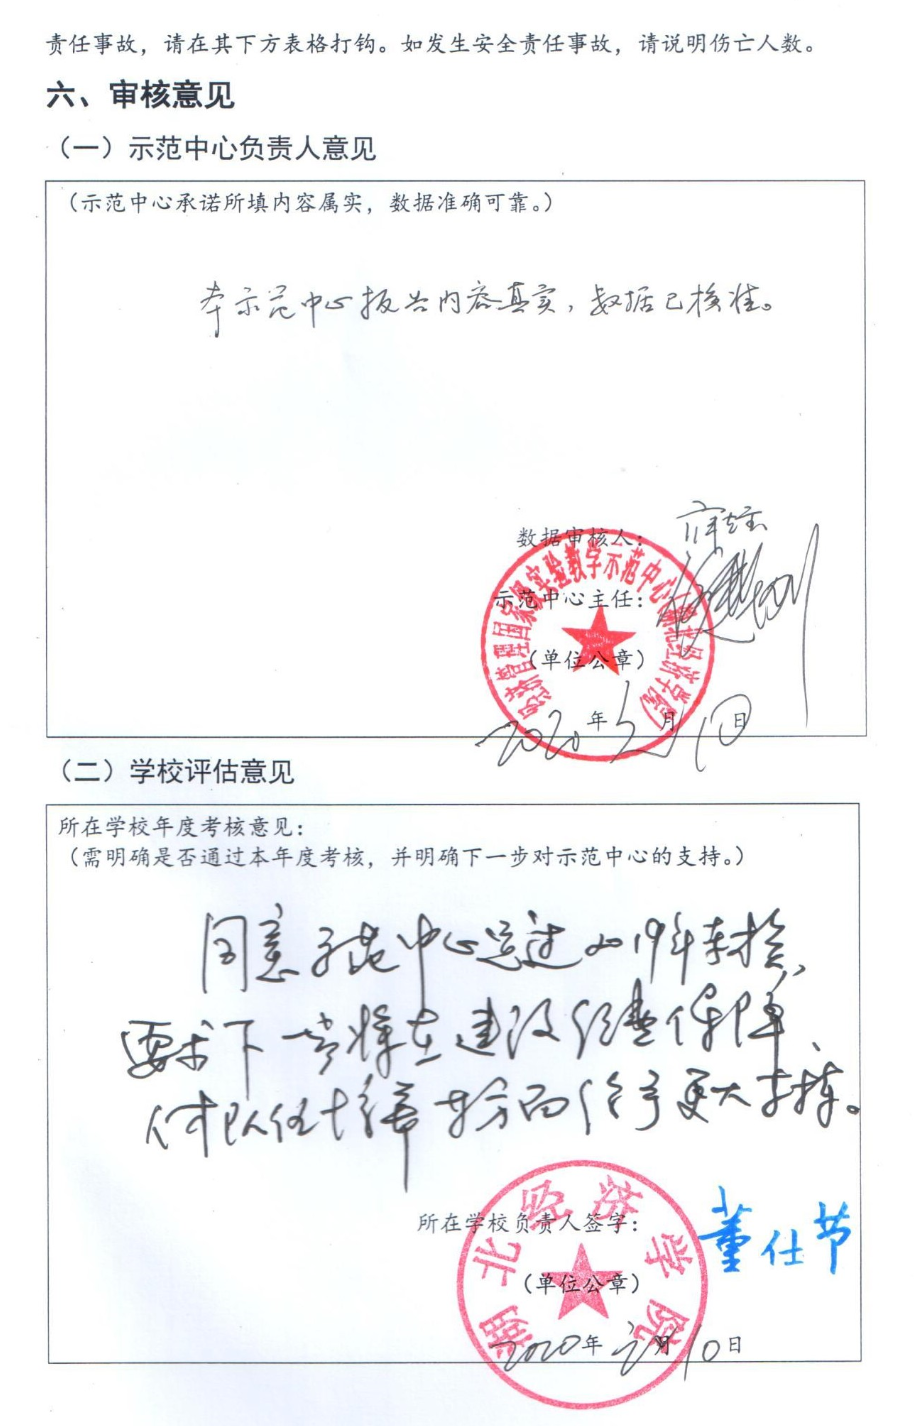 责任事故，请在其下方表格打钩。如发生安全责任事故，请说明伤亡人数。
六、审核意见
（一）示范中心负责人意见
（示范中心承诺所填内容属实，数据准确可靠。）
本示范中心报告内容真实，数据已核准。
数据审核人：
示范中心主任：
（单位公章）
经济管理国家级实验教学示范中心（湖北经济学院）
2020年 月10日
（二）学校评估意见
所在学校年度考核意见：
（需明确是否通过本年度考核，并明确下一步对示范中心的支持。）
同意示范中心通过2019年年检，
要求下一步将在建设经费保障
人才队伍 等方面给予更大支持。
所在学校负责人签字：
董仕节
（单位公章）
湖北经济学院
2020年2月10日